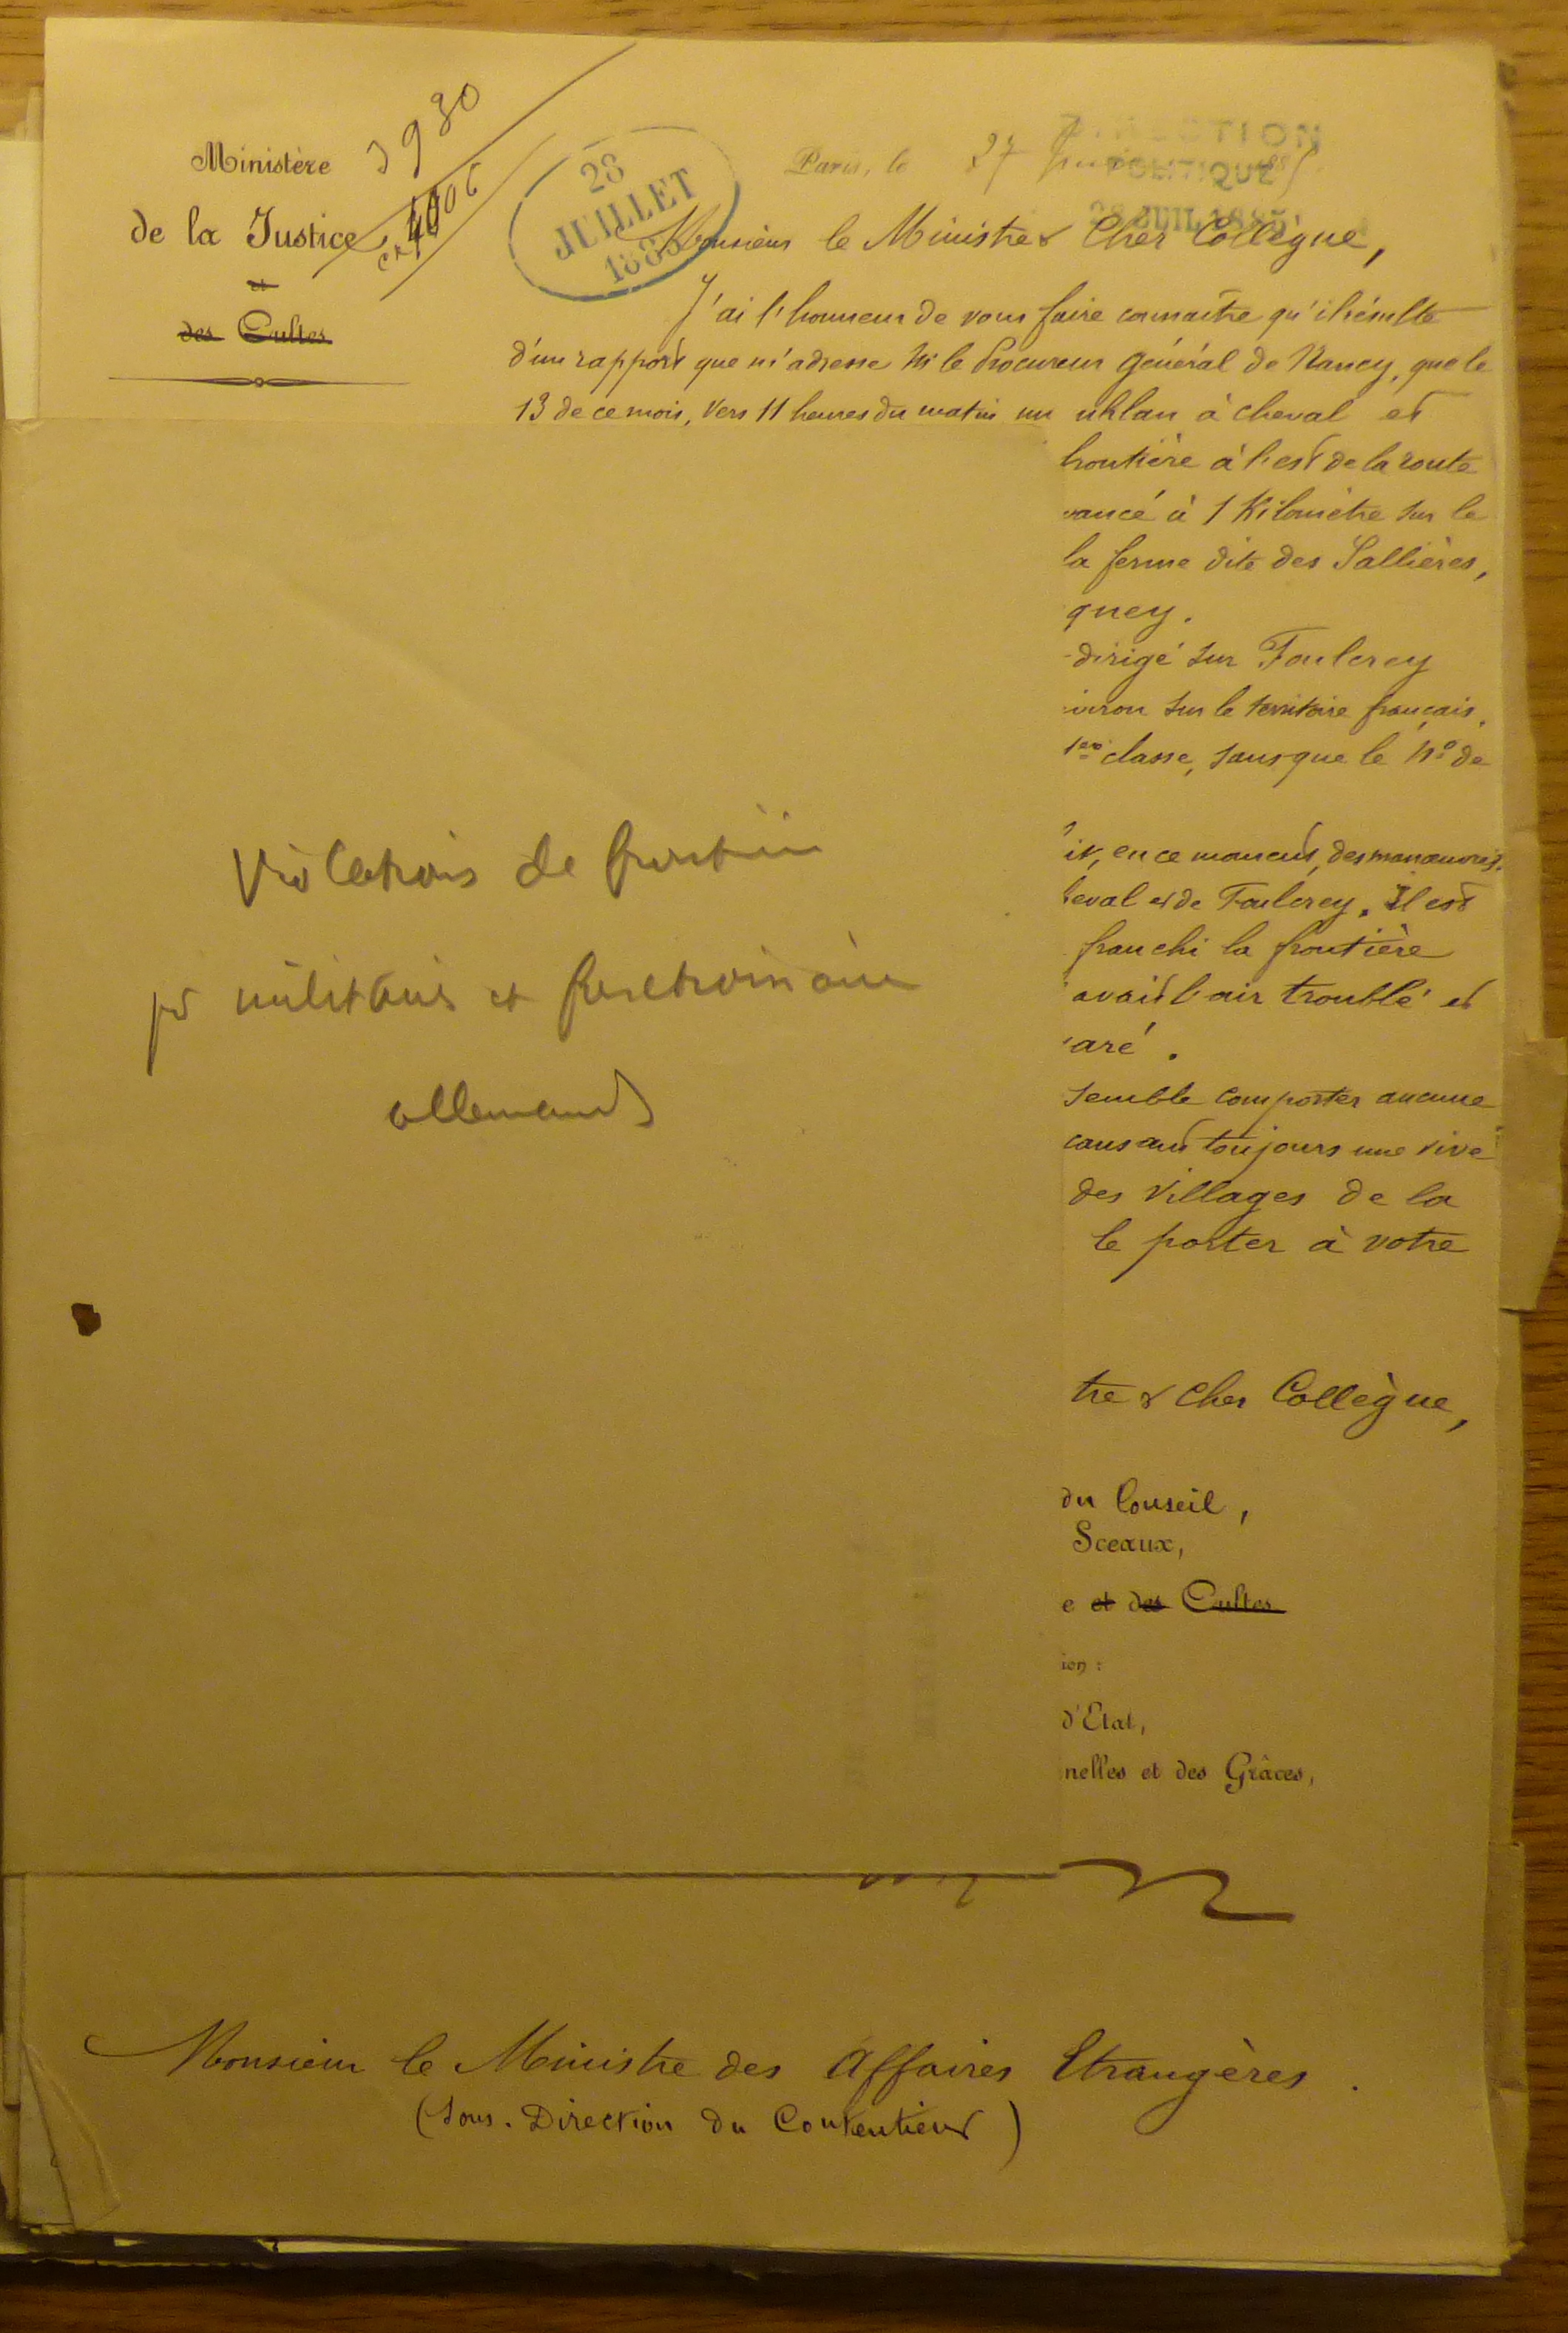 Ministère
de la Justice
et
des Cultes
3980
28
JUILLET
1885
DIRECTION
POLITIQUE
28 JUIL 1885
Paris, le 27 Juillet 1885.
Monsieur le Ministre & Cher Collègue,
J'ai l'honneur de vous faire connaître qu'il résulte
d'un rapport que m'adresse Mr le Procureur Général de Nancy, que le
13 de ce mois, vers 11 heures du matin un uhlan à cheval et
frontière à l'est de la route
vancé à 1 Kilomètre sur le
la ferme dite des Sallières,
quey.
dirigé sur Foulcrey
iron sur le territoire français.
1ère classe, sans que le No de
it, en ce moment, des manœuvres.
heval et de Foulcrey. Il est
franchi la frontière
avait l'air troublé et
aré.
semble comporter aucune
causant toujours une vive
des villages de la
le porter à votre
tre & cher Collègue,
du Conseil,
Sceaux,
e et des Cultes
ion :
d'Etat,
nelles et des Grâces,
Violations de frontière
pr militaires et fonctionnaires
allemands
Monsieur le Ministre des Affaires Etrangères.
(Sous-Direction du Contentieux)